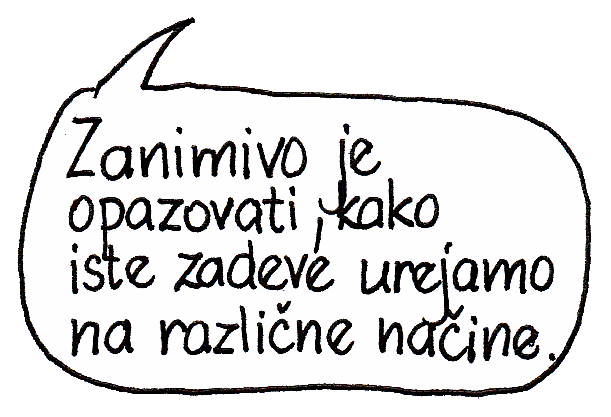 Zanimivo je
opazovati, kako
iste zadeve urejamo
na različne načine.